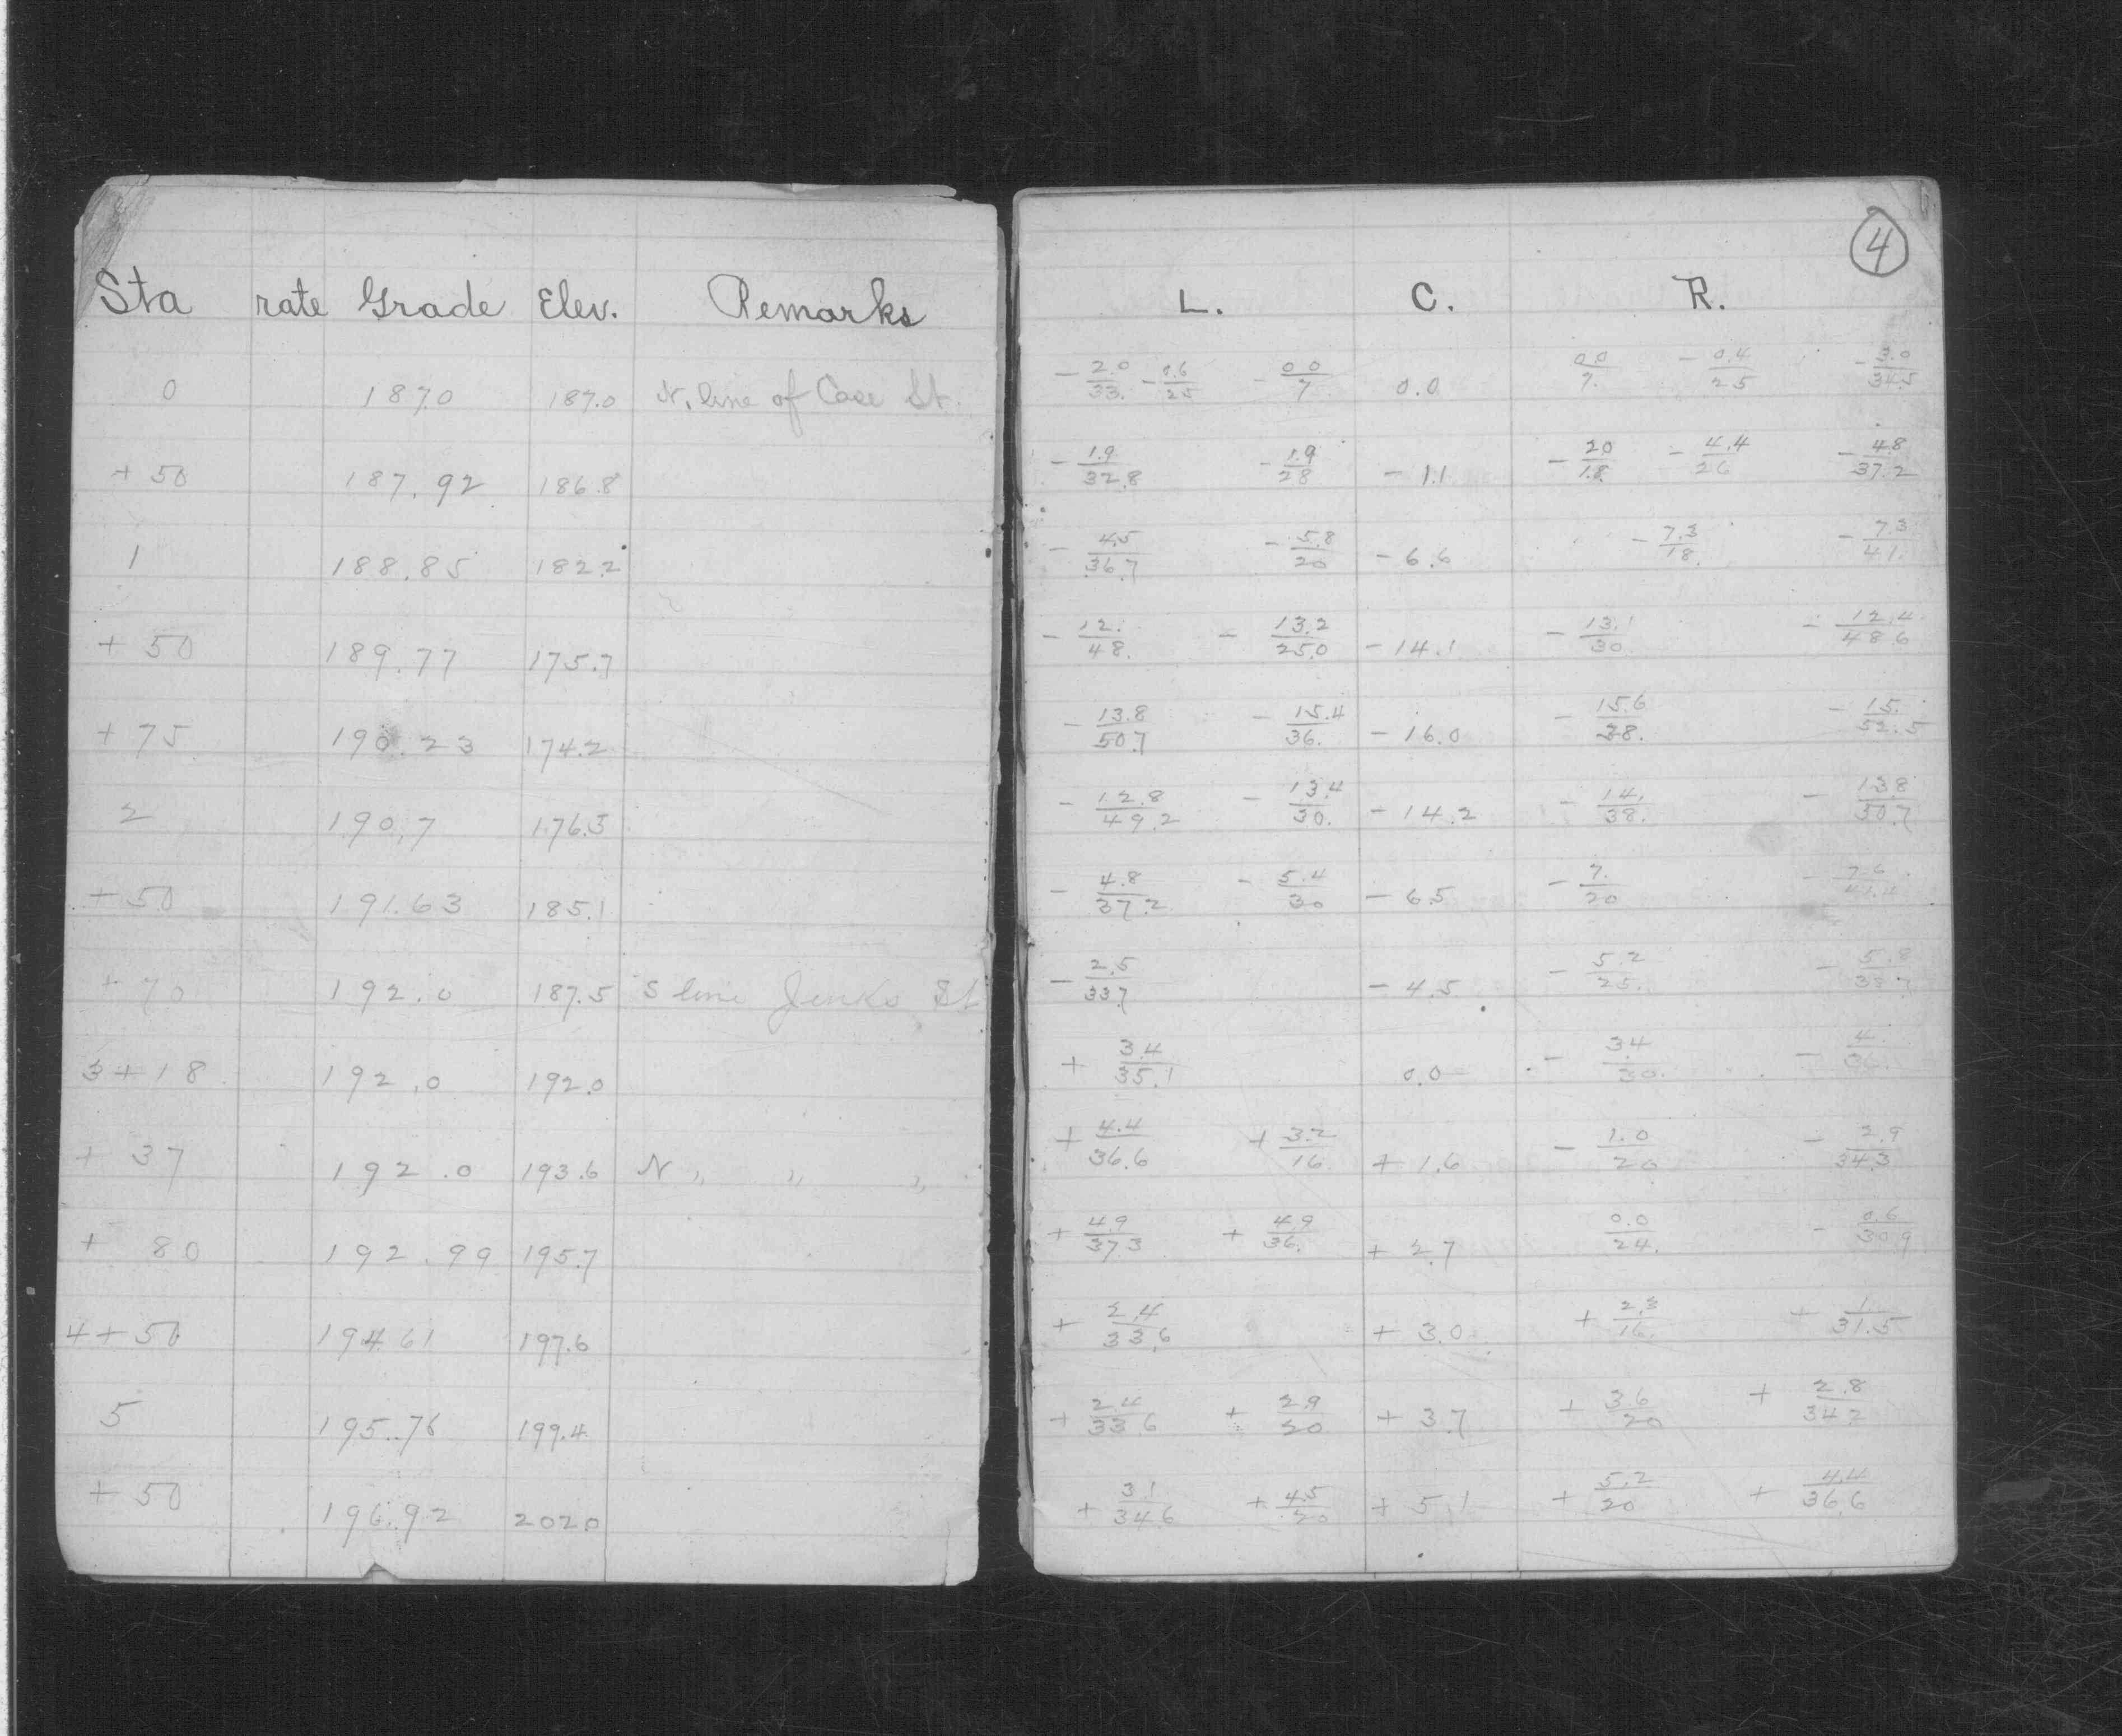 4
Sta rate Grade Elev. Remarks L. C. R.
0 187.0 187.0 N. line of Case St. - 2.0/33. - 0.0/7 0.0 0.0/7. - 0.4/25 - 3.0/34.5
+ 50 187.92 186.8 - 1.9/32.8 - 1.9/28 - 1.1 - 2.0/18. - 4.4/26 - 4.8/37.2
1 188.85 182.2 - 4.5/36.7 - 5.8/20 - 6.6 - 7.3/18. - 7.3/41.
+ 50 189.77 175.7 - 12./48. - 13.2/25.0 - 14.1 - 13.1/30. - 12.4/48.6
+ 75 190.23 174.2 - 13.8/50.7 - 15.4/36. - 16.0 - 15.6/38. - 15./52.5
2 190.7 176.5 - 12.8/49.2 - 13.4/30. - 14.2 - 14./38. - 13.8/50.7
+ 50 191.63 185.1 - 4.8/37.2 - 5.4/30 - 6.5 - 7./20 - 7.6/41.4
+ 70 192.0 187.5 S line Jenks St - 2.5/33.7 - 4.5 - 5.2/25. - 5.8/38.7
3 + 18 192.0 192.0 + 3.4/35.1 0.0 - 3.4/30. - 4./36.
+ 37 192.0 193.6 N " " " + 4.4/36.6 + 3.2/16 + 1.6 - 1.0/20 - 2.9/34.3
+ 80 192.99 195.7 + 4.9/37.3 + 4.9/36. + 2.7 0.0/24. - 0.6/30.9
4 + 50 194.61 197.6 + 2.4/33.6 + 3.0 + 2.3/16. + 1./31.5
5 195.76 199.4 + 2.4/33.6 + 2.9/20 + 3.7 + 3.6/20 + 2.8/34.2
+ 50 196.92 202.0 + 3.1/34.6 + 4.5/20 + 5.1 + 5.2/20 + 4.4/36.6